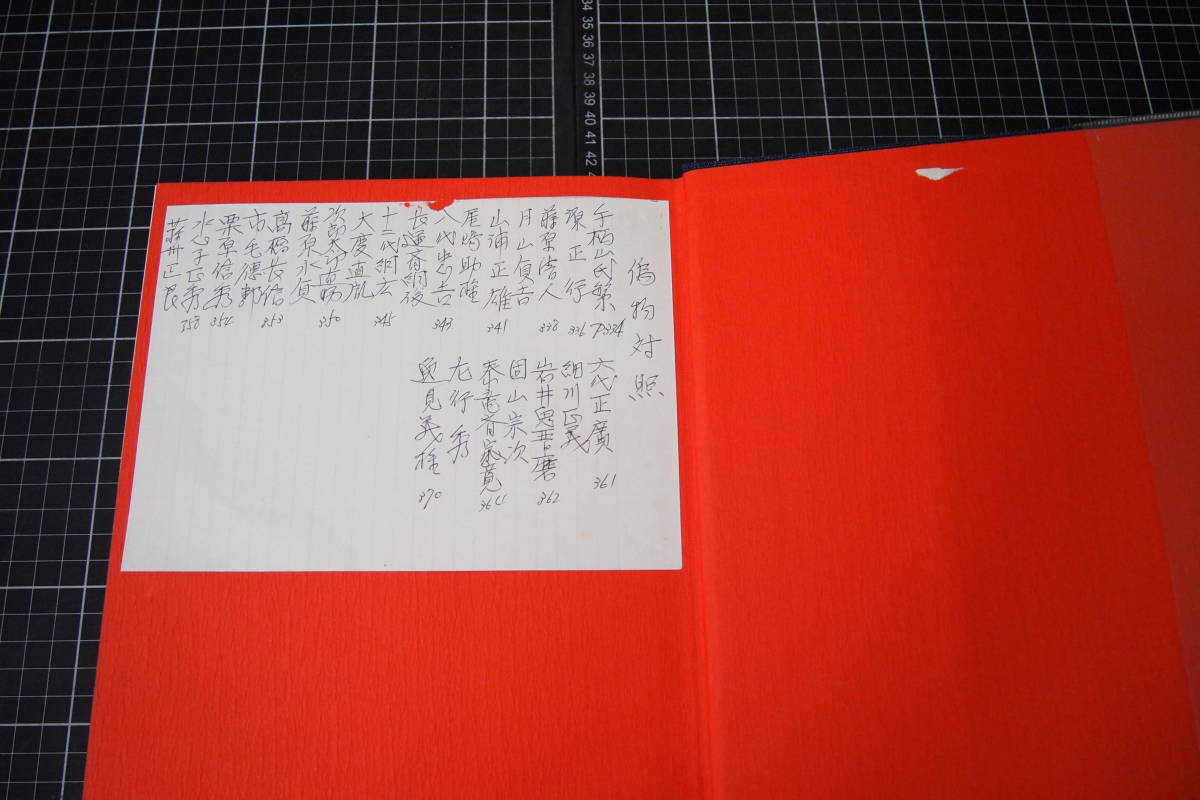 偽物対照
手柄山氏繁 P334
源正行 336
藤原清人 338
月山貞吉
山浦正雄 341
尾崎助隆
八代忠吉 343
長運斎綱俊
十二代綱広 345
大慶直胤
次郎太郎直勝 350
藤原永貞
高橋長信 353
市毛德鄰
栗原信秀 354
水心子正秀 358
薩州正良
六代正廣 361
細川正義
岩井鬼晋麿 362
固山宗次
泰竜斎宗寛 364
左行秀
逸見義隆 370
34
35
36
37
38
39
40
41
42